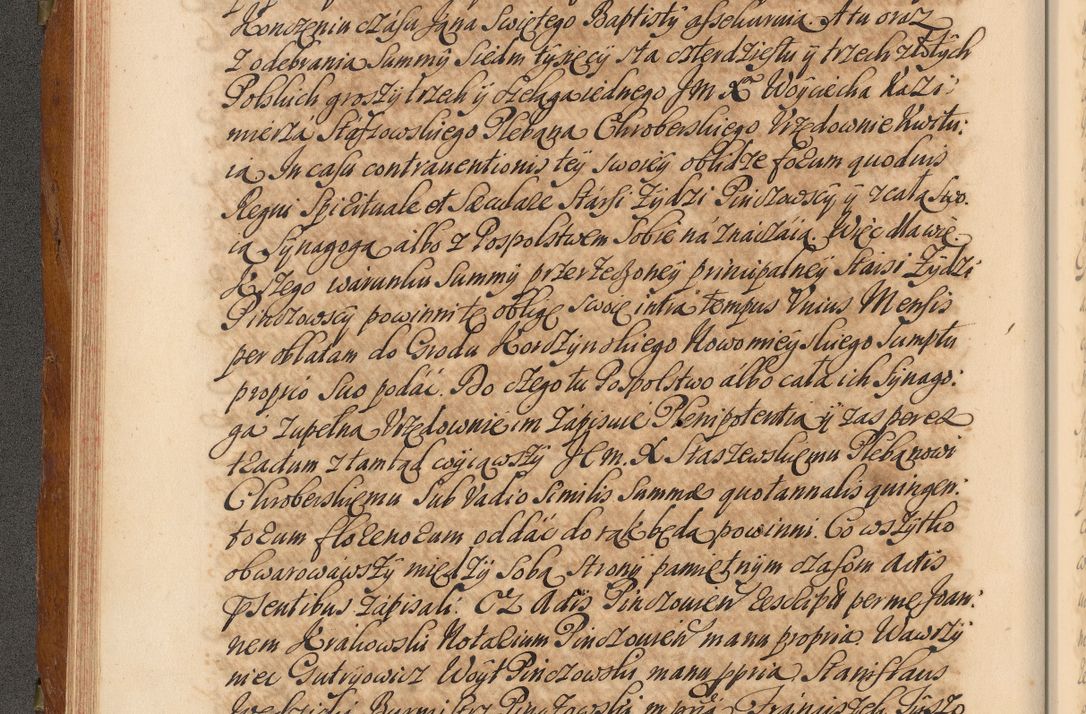 Konczeniu czasu Jana Swiętego Baptisty assekuruią. A tu oraz
z odebrania Summy Siedm tysięcy sta czterdziestu y trzech złotych
Polskich groszy trzech y szeląga iednego Jm X Woyciecha Kazi:
mierza Staszowskiego Plebana Chroberskiego Urzędownie kwitu:
ią In casu contraventionis tey swoiey oblidze forum quodvis
Regni Spirituale et Sæculare Starsi Zydzi Pinczowscy y z całą swo:
ią Synagogą albo z Pospolstwem Sobie náznaczaią. Więc dla wię
kszego warunku Summy przerzeczoney principalney Starsi Zydzi
Pinczowscy powinni tę obligę swoię intra tempus Unius Mensis
per oblatam do Grodu Korczynskiego Nowomieyskiego Sumptu
proprio Suo podać. Do czego tu Pospolstwo albo cała ich Synago:
gá zupełną Urzędownie im zápisuie Plenipotentią y zas peres
tractum z tamtąd wyiąwszy JEm. X Staszewskiemu Plebanowi
Chroberskiemu Sub Vadio Similis Summæ quotannalis quingen:
torum florenorum oddáć do rąk będą powinni. Co wszytko
obwarowawszy między Sobą Strony pamiętnym czasow Actis
pńtibus zápisali. Ex Actis Pinczovien̄ rescripta per me Joan:
nem Krakowski Notarium Pinczovien̄ manu propria. Wawrzy
niec Gutryowicz Woyt Pinczowski manu ppria Stanisłaus
Burmistrz Pinczowski m ppria Franciszek